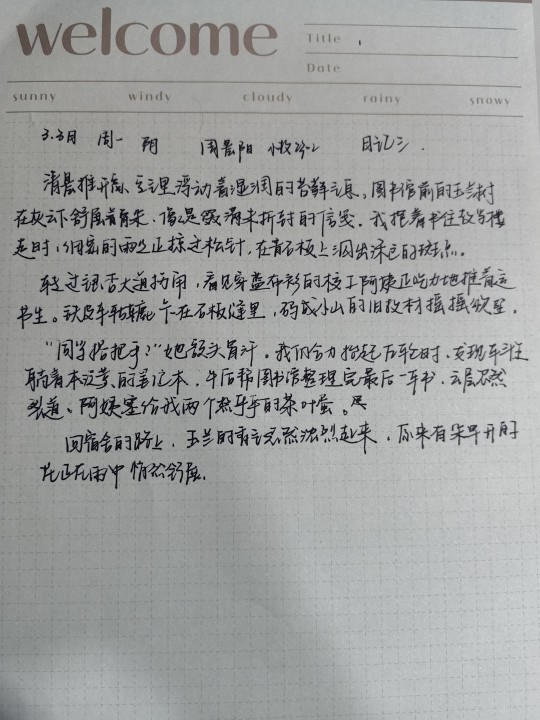 welcome
Title
Date
sunny windy cloudy rainy snowy
3.3月 周一 阴 周景阳 日记三.
清晨推开窗,空气里浮动着湿润的苔藓气息。图书馆前的玉兰树
在灰云下舒展着骨朵,像是缀满未拆封的信笺。我抱着书往教学楼
走时,细密的雨丝正掠过松针,在青石板上洇出深色的斑点。
转过银杏大道拐角,看见穿蓝布衫的校工阿姨正吃力地推着运
书车。铁皮车轱辘卡在石板缝里,码成小山的旧教材摇摇欲坠。
“同学搭把手?”她额头冒汗。我们合力抬起后轮时,发现车斗里
躺着本泛黄的笔记本。午后帮图书馆整理完最后一车书,云层忽然
裂道,阿姨塞给我两个热乎乎的茶叶蛋。
回宿舍的路上,玉兰的香气忽然浓烈起来,原来有朵早开的
花正在雨中悄然舒展。